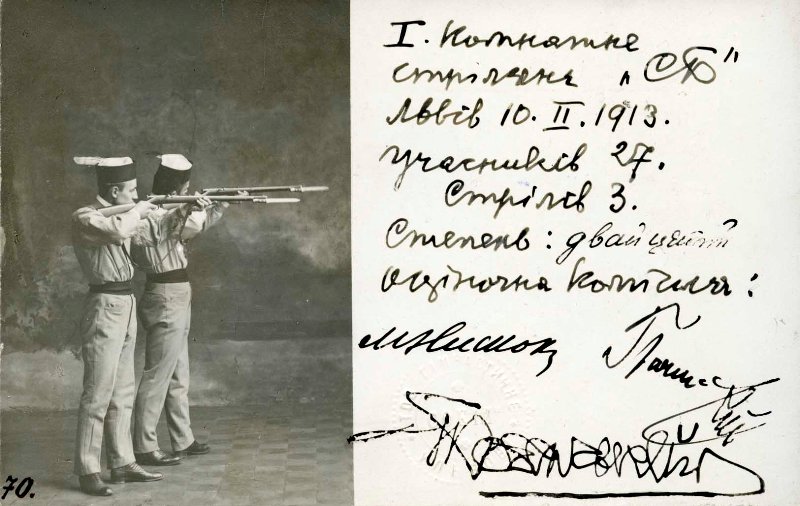 I. Комнатне
стрілянє „СБ"
Львів 10. II. 1913.
учасників 27.
Стрілів 3.
Степень: двайцятий
Оціночна комісия:
70.